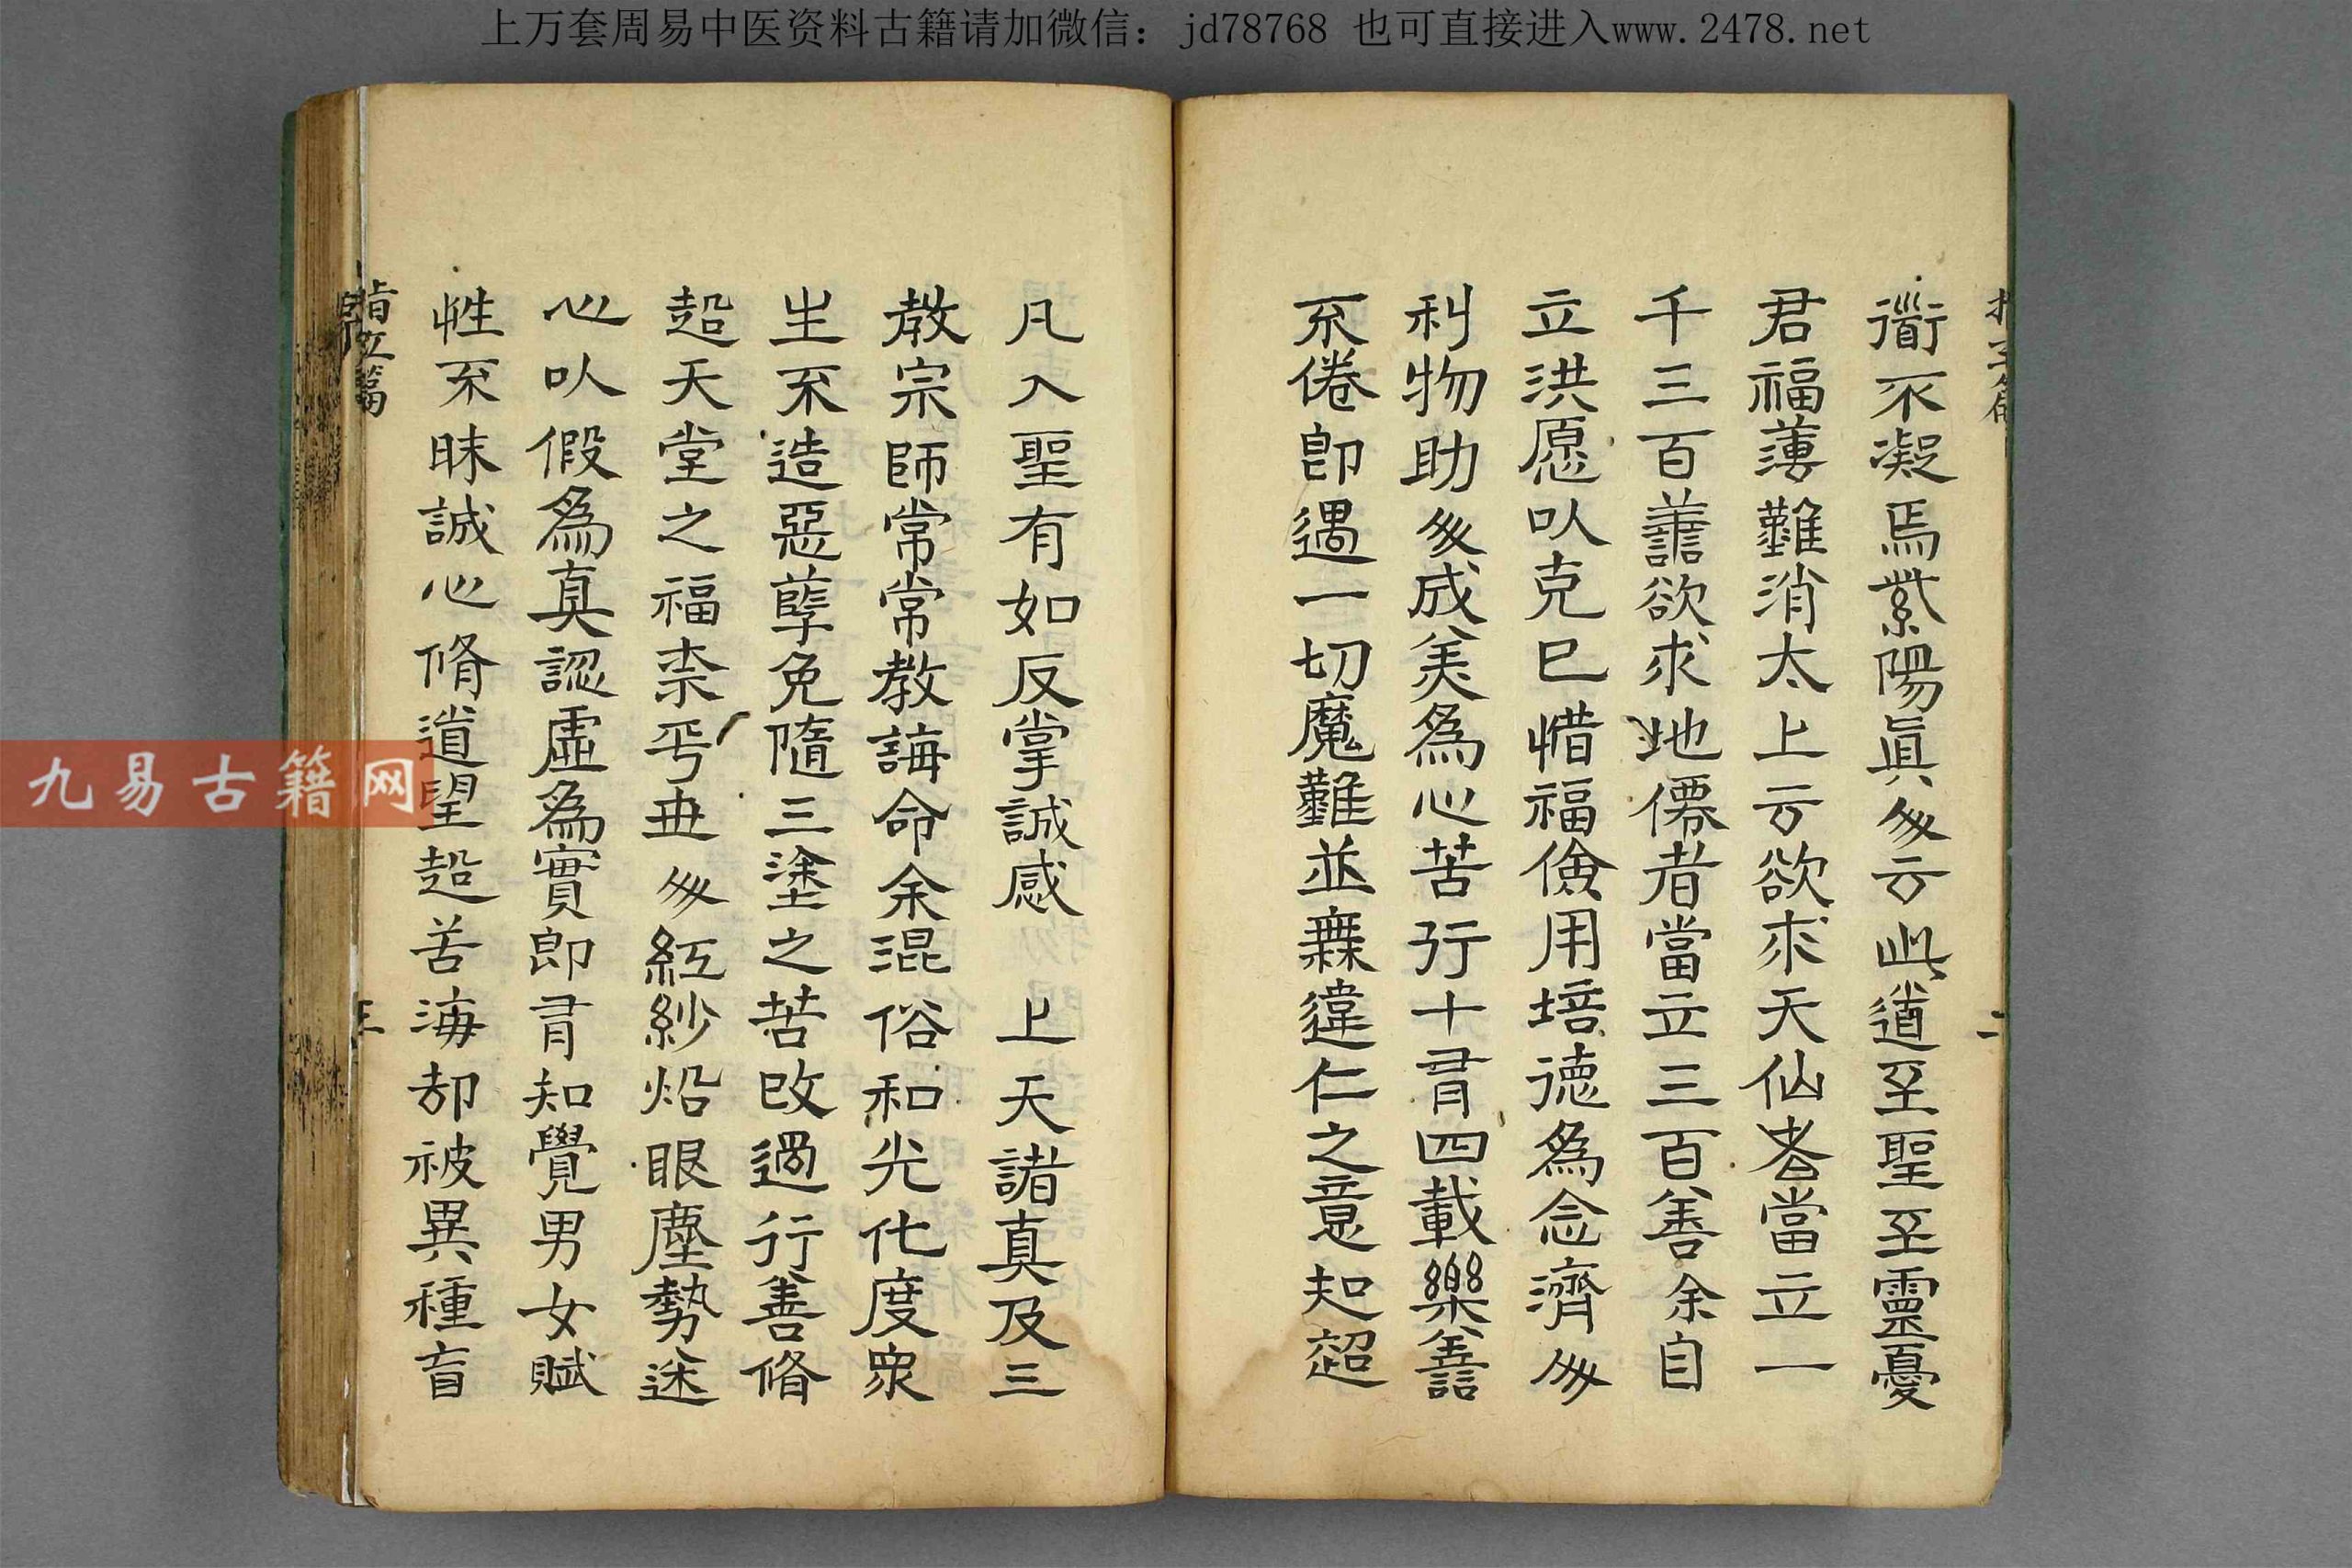 上万套周易中医资料古籍请加微信：jd78768 也可直接进入www.2478.net
衟不凝焉紫陽眞人云此道至聖至靈憂
君福薄難消太上云欲求天仙者當立一
千三百譱欲求地僊者當立三百善余自
立洪愿以克己惜福儉用培德為念濟人
利物助人成美為心苦行十有四載樂譱
不倦即遇一切魔難並無違仁之意起超
凡入聖有如反掌誠感 上天諸真及三
教宗師常常教誨命余混俗和光化度眾
生不造惡孽免隨三塗之苦改過行善脩
超天堂之福柰乎世人紅紗焰眼塵勢迷
心以假為真認虛為實即有知覺男女賦
性不昧誠心脩道望超苦海却被異種盲
指立篇
二
三
九易古籍网